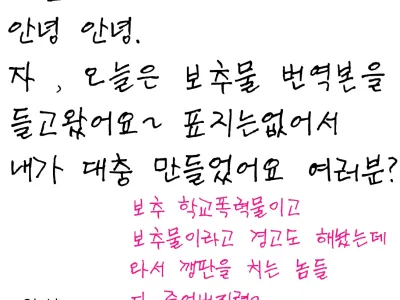 안녕 안녕.
자, 오늘은 보추물 번역본을
들고왔어요~ 표지는없어서
내가 대충 만들었어요 여러분?
보추 학교폭력물이고
보추물이라고 경고도 해놨는데
와서 깽판을 치는 놈들